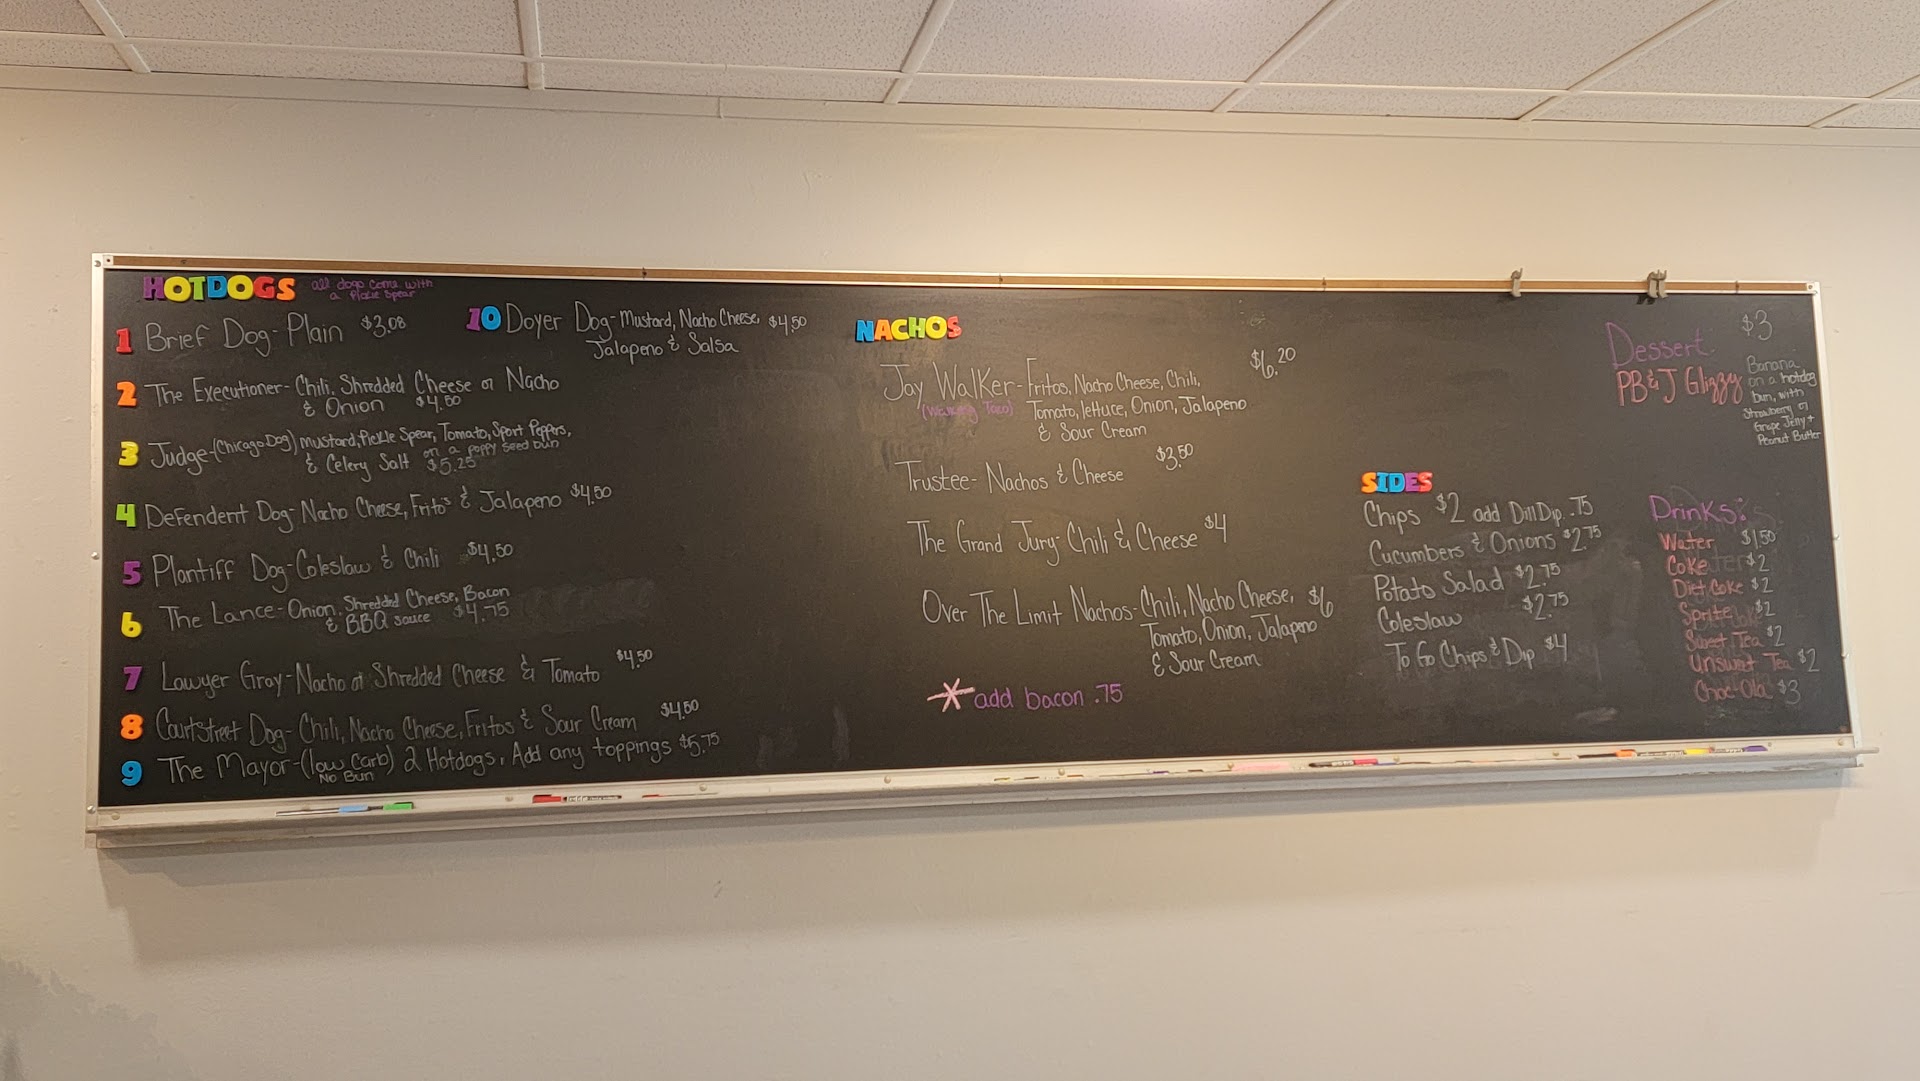 HOTDOGS all dogs come with
a Pickle Spear
1 Brief Dog- Plain $3.08
2 The Executioner- Chili, Shredded Cheese or Nacho
& Onion $4.50
3 Judge-(Chicago Dog) mustard, Pickle Spear, Tomato, Sport Peppers,
& Celery Salt on a poppy seed bun
$5.25
4 Defendent Dog- Nacho Cheese, Frito's & Jalapeno $4.50
5 Plantiff Dog- Coleslaw & Chili $4.50
6 The Lance- Onion, Shredded Cheese, Bacon
& BBQ sauce $4.75
7 Lawyer Gray- Nacho or Shredded Cheese & Tomato $4.50
8 CourtStreet Dog- Chili, Nacho Cheese, Fritos & Sour Cream $4.50
9 The Mayor-(low Carb) 2 Hotdogs, Add any toppings $5.75
No Bun
10 Doyer Dog- Mustard, Nacho Cheese, $4.50
Jalapeno & Salsa
NACHOS
Jay Walker- Fritos, Nacho Cheese, Chili, $6.20
(Walking Taco) Tomato, lettuce, Onion, Jalapeno
& Sour Cream
Trustee- Nachos & Cheese $3.50
The Grand Jury- Chili & Cheese $4
Over The Limit Nachos- Chili, Nacho Cheese, $6
Tomato, Onion, Jalapeno
& Sour Cream
* add bacon .75
SIDES
Chips $2 add Dill Dip .75
Cucumbers & Onions $2.75
Potato Salad $2.75
Coleslaw $2.75
To Go Chips & Dip $4
Dessert: $3
PB&J Glizzy
Banana
on a hotdog
bun, with
Strawberry or
Grape Jelly +
Peanut Butter
Drinks:
Water $1.50
Coke $2
Diet Coke $2
Sprite $2
Sweet Tea $2
Unsweet Tea $2
Choc-Ola $3